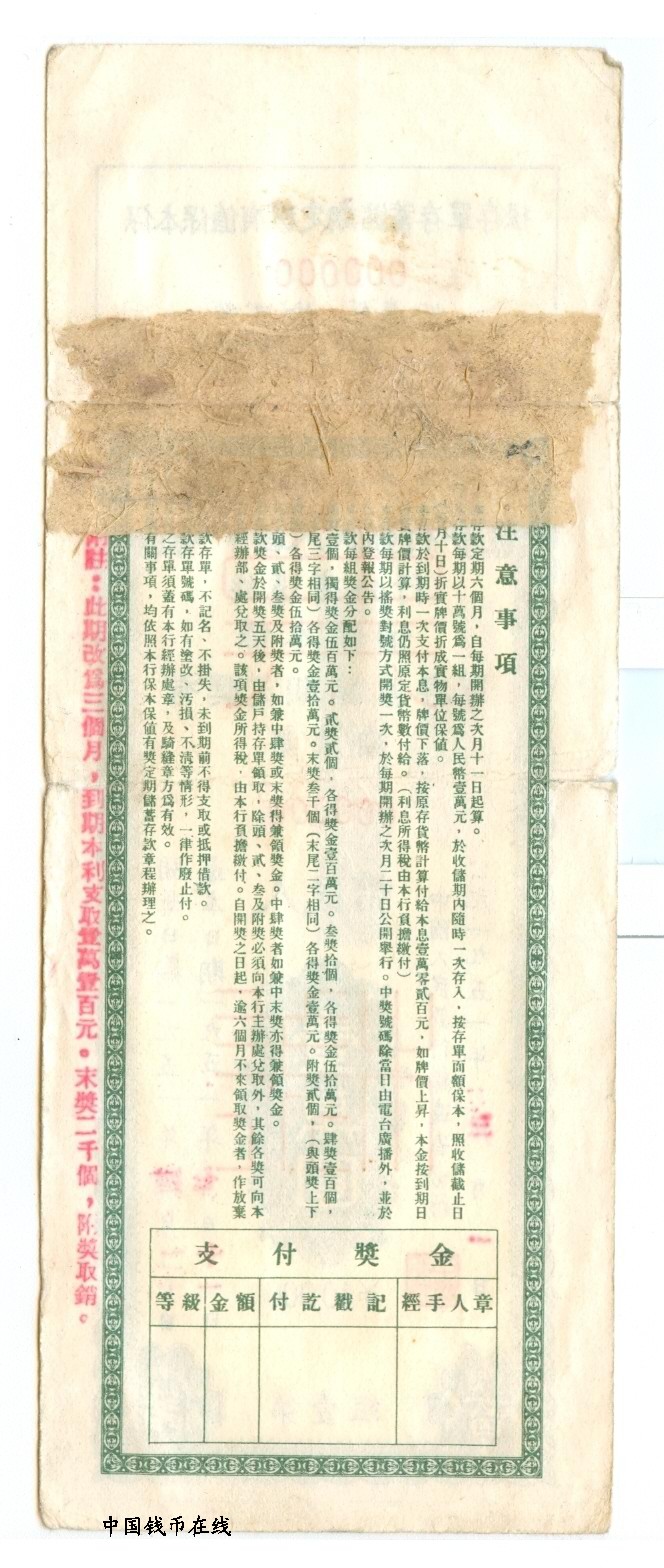 注意事項
款定期六個月，自每期開辦之次月十一日起算。
款每期以十萬號爲一組，每號爲人民幣壹萬元，於收儲期內隨時一次存入，按存單面額保本，照收儲截止日
月十日）折實牌價折成實物單位保值。
款於到期時一次支付本息，牌價下落，按原存貨幣計算付給本息壹萬零貳百元，如牌價上昇，本金按到期日
牌價計算，利息仍照原定貨幣數付給。（利息所得稅由本行負擔繳付）
款每期以搖獎對號方式開獎一次，於每期開辦之次月二十日公開舉行。中獎號碼除當日由電台廣播外，並於
內登報公告。
款每組獎金分配如下：
壹個，獨得獎金伍百萬元。貳獎貳個，各得獎金壹百萬元。叁獎拾個，各得獎金伍拾萬元。肆獎壹百個，
尾三字相同）各得獎金壹拾萬元。末獎叁千個（末尾二字相同）各得獎金壹萬元。附獎貳個，（與頭獎上下
）各得獎金伍拾萬元。
頭、貳、叁獎及附獎者，如兼中肆獎或末獎得兼領獎金。中肆獎者如兼中末獎亦得兼領獎金。
款獎金於開獎五天後，由儲戶持存單領取，除頭、貳、叁及附獎必須向本行主辦處兌取外，其餘各獎可向本
經辦部、處兌取之。該項獎金所得稅，由本行負擔繳付。自開獎之日起，逾六個月不來領取獎金者，作放棄
款存單，不記名、不掛失，未到期前不得支取或抵押借款。
款存單號碼，如有塗改、汚損、不清等情形，一律作廢止付。
之存單須蓋有本行經辦處章，及騎縫章方爲有效。
有關事項，均依照本行保本保值有獎定期儲蓄存款章程辦理之。
附註：此期改爲三個月，到期本利支取壹萬壹百元。末獎二千個，附獎取銷。
支付獎金
等級 金額 付訖戳記 經手人章
中国钱币在线